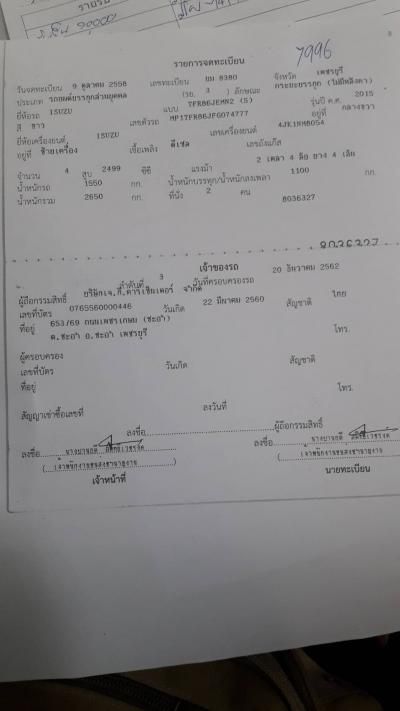 รายการจดทะเบียน
7996
วันจดทะเบียน 9 ตุลาคม 2558 เลขทะเบียน ยม 8380 จังหวัด เพชรบุรี
ประเภท รถยนต์บรรทุกส่วนบุคคล (รย. 3 ) ลักษณะ กระบะบรรทุก (ไม่มีหลังคา)
ยี่ห้อรถ ISUZU แบบ TFR86JEMN2 (S) รุ่นปี ค.ศ. 2015
สี ขาว เลขตัวรถ MP1TFR86JFG074777 อยู่ที่ กลางขวา
ยี่ห้อเครื่องยนต์ ISUZU เลขเครื่องยนต์ 4JK1NM8054
อยู่ที่ ซ้ายเครื่อง เชื้อเพลิง ดีเซล เลขถังแก๊ส
จำนวน 4 สูบ 2499 ซีซี แรงม้า 2 เพลา 4 ล้อ ยาง 4 เส้น
น้ำหนักรถ 1550 กก. น้ำหนักบรรทุก/น้ำหนักลงเพลา 1100 กก.
น้ำหนักรวม 2650 กก. ที่นั่ง 2 คน
8036327
เจ้าของรถ
ลำดับที่ 3 วันที่ครอบครองรถ 20 ธันวาคม 2562
ผู้ถือกรรมสิทธิ์ จำกัด
เลขที่บัตร 0765560000446 วันเกิด 22 มีนาคม 2560 สัญชาติ ไทย
ที่อยู่ 653/69 ถนนเพชรเกษม (ชะอำ) โทร.
ต.ชะอำ อ.ชะอำ เพชรบุรี
ผู้ครอบครอง
เลขที่บัตร วันเกิด สัญชาติ
ที่อยู่ โทร.
สัญญาเช่าซื้อเลขที่ ลงวันที่
ลงชื่อ ผู้ถือกรรมสิทธิ์
ลงชื่อ ลงชื่อ
เจ้าหน้าที่ นายทะเบียน